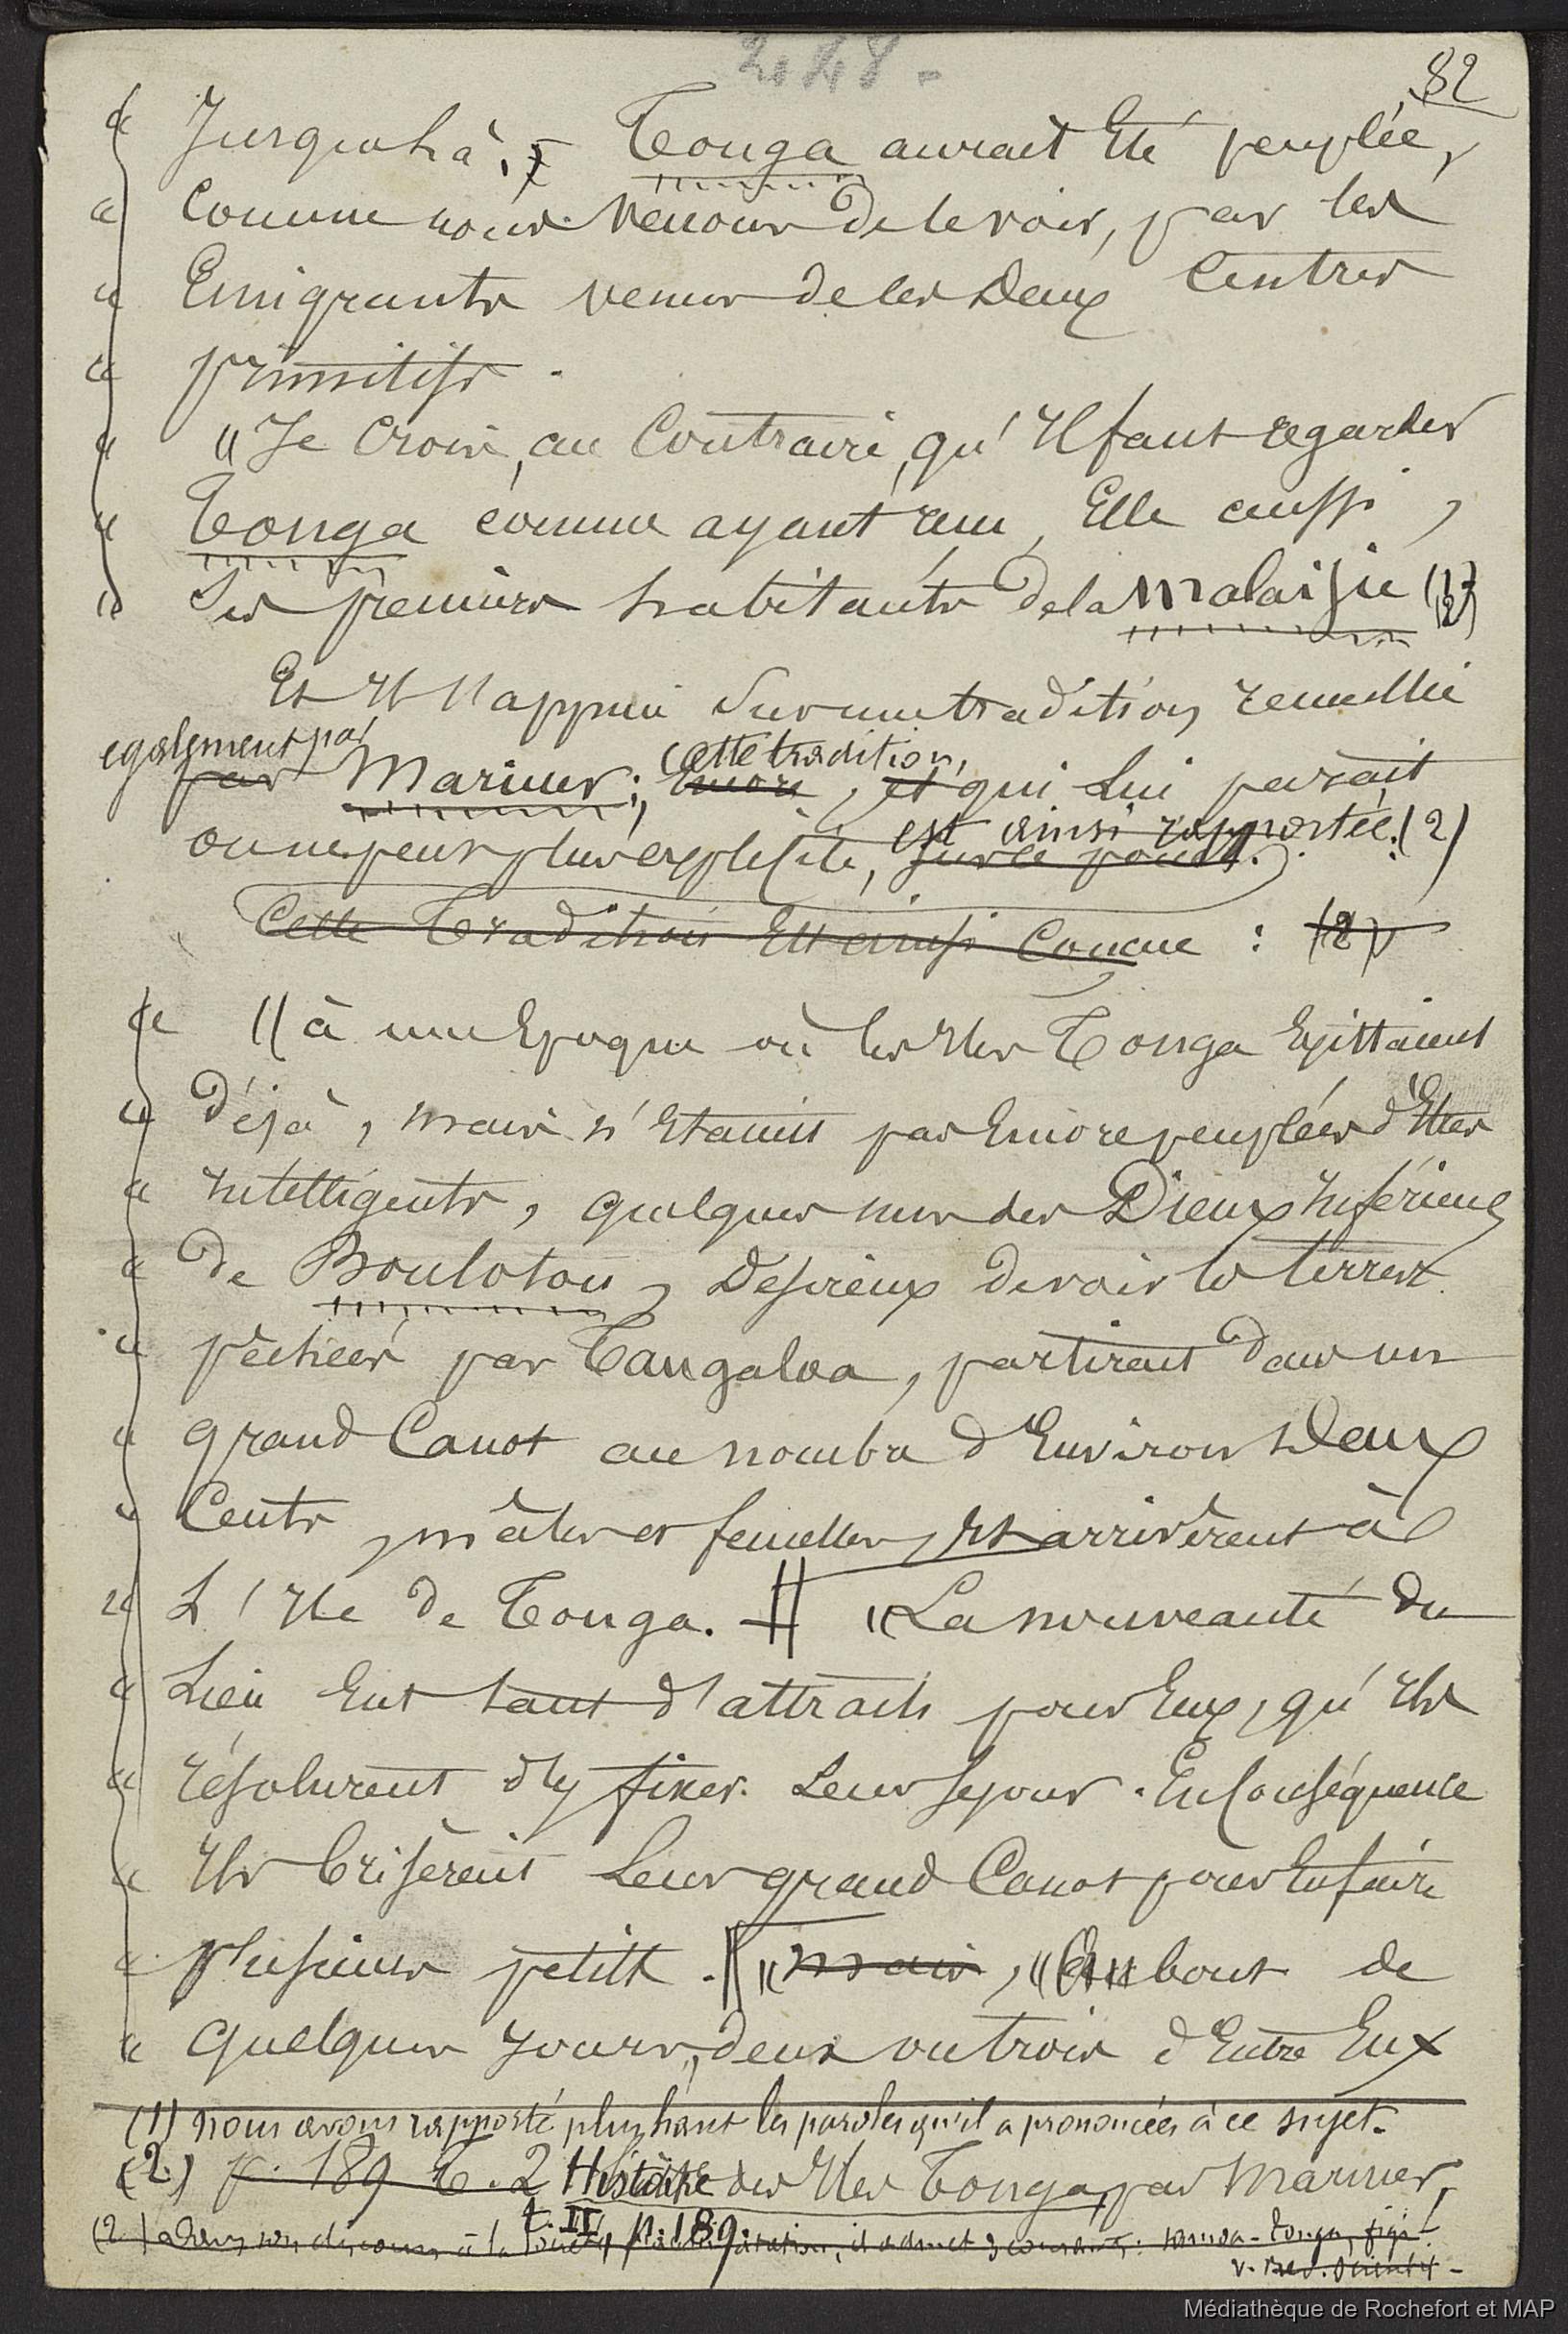 248.
82
« Jusque là, Tonga aurait Eté peuplée,
« Comme nous venons de le voir, par les
« Emigrants venus de les Deux Centres
« primitifs.
« "Je Crois, au Contraire, qu'Il faut regarder
« Tonga comme ayant reçu, Elle aussi,
« Ses premiers habitants de la Malaisie (1)
Et Il s'appuie sur une tradition, recueillie
egalement par
par Mariner; Encore, et qui lui parait
cette tradition,
ou un peu plus explicite, sur ce point.
est ainsi rapportée: (2)
Cette Tradition Est ainsi Conçue : (2)
« "à une Epoque où les Iles Tonga Existaient
« Déjà, mais n'Etaient pas Encore peuplées d'Etres
« Intelligents, quelques uns des Dieux Inférieurs
« de Boulotou, Désireux de voir les terres
« pêchées par Tangaloa, partirent dans un
« grand Canot au nombre d'Environ Deux
« Cents, mâles et femelles, Et arrivèrent à
« L'Ile de Tonga. "La nouveauté du
« Lieu Eut tant d'attraits pour Eux, qu'Ils
« résolurent d'y fixer Leur Sejour. En Conséquence
« Ils briserent Leur grand Canot pour En faire
« plusieurs petits. "mais, "Au bout de
« Quelques Jours, deux ou trois d'Entre Eux
(1) nous avons rapporté plus haut les paroles qu'il a prononcées à ce sujet.
(2) p. 189 T. 2 Histoire des Iles Tonga, par Mariner,
t. II, p. 189.
(2) dans son discours à la Société, il admet 3 courants: Samoa-Tonga, fiji
v. Rev. Orient.
Médiathèque de Rochefort et MAP